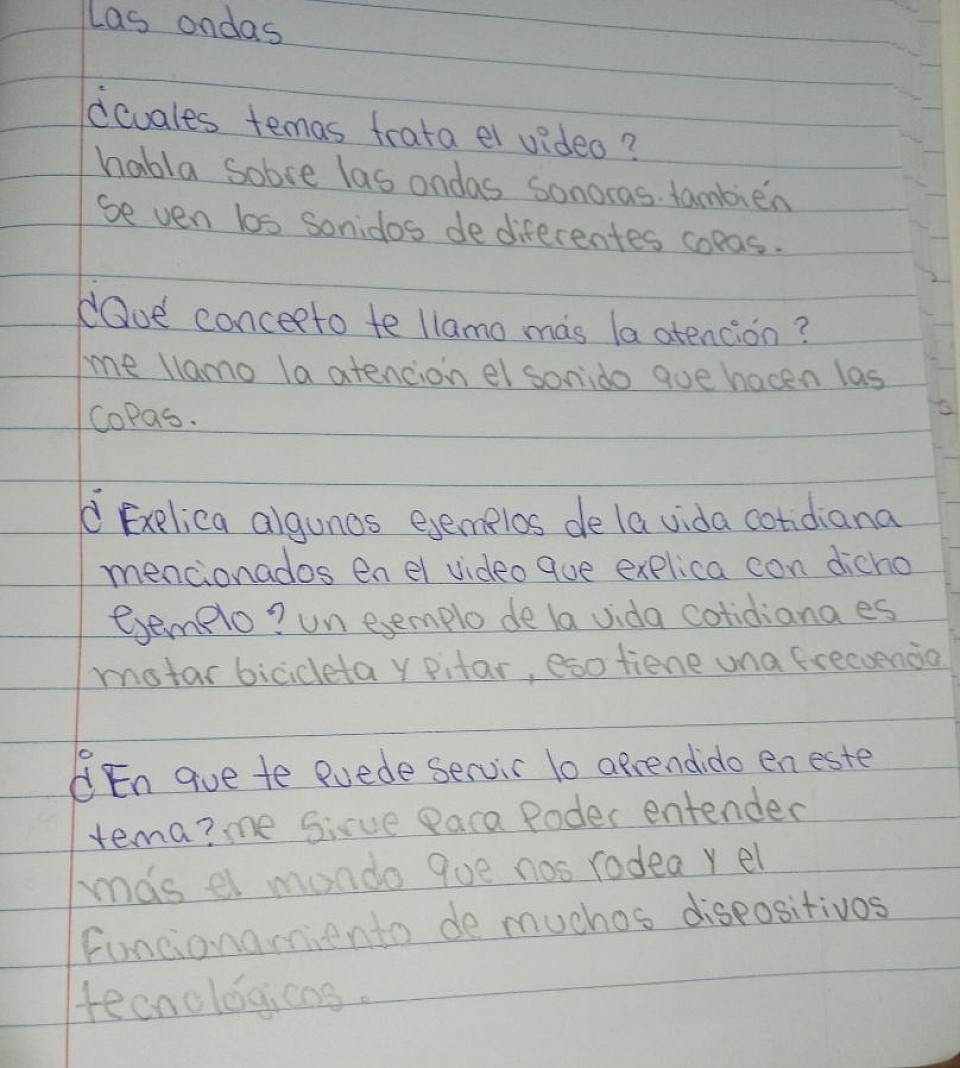 Las ondas
¿cuales temas trata el video?
habla sobre las ondas sonoras. también
se ven los sonidos de diferentes copas.
¿Qué concepto te llamo más la atención?
me llamo la atención el sonido que hacen las
copas.
¿Explica algunos ejemplos de la vida cotidiana
mencionados en el video que explica con dicho
ejemplo? un ejemplo de la vida cotidiana es
motar bicicleta y pitar, eso tiene una frecuencia
¿En que te puede servir lo aprendido en este
tema? me sirve para poder entender
más el mondo que nos rodea y el
funcionamiento de muchos dispositivos
tecnológicos.